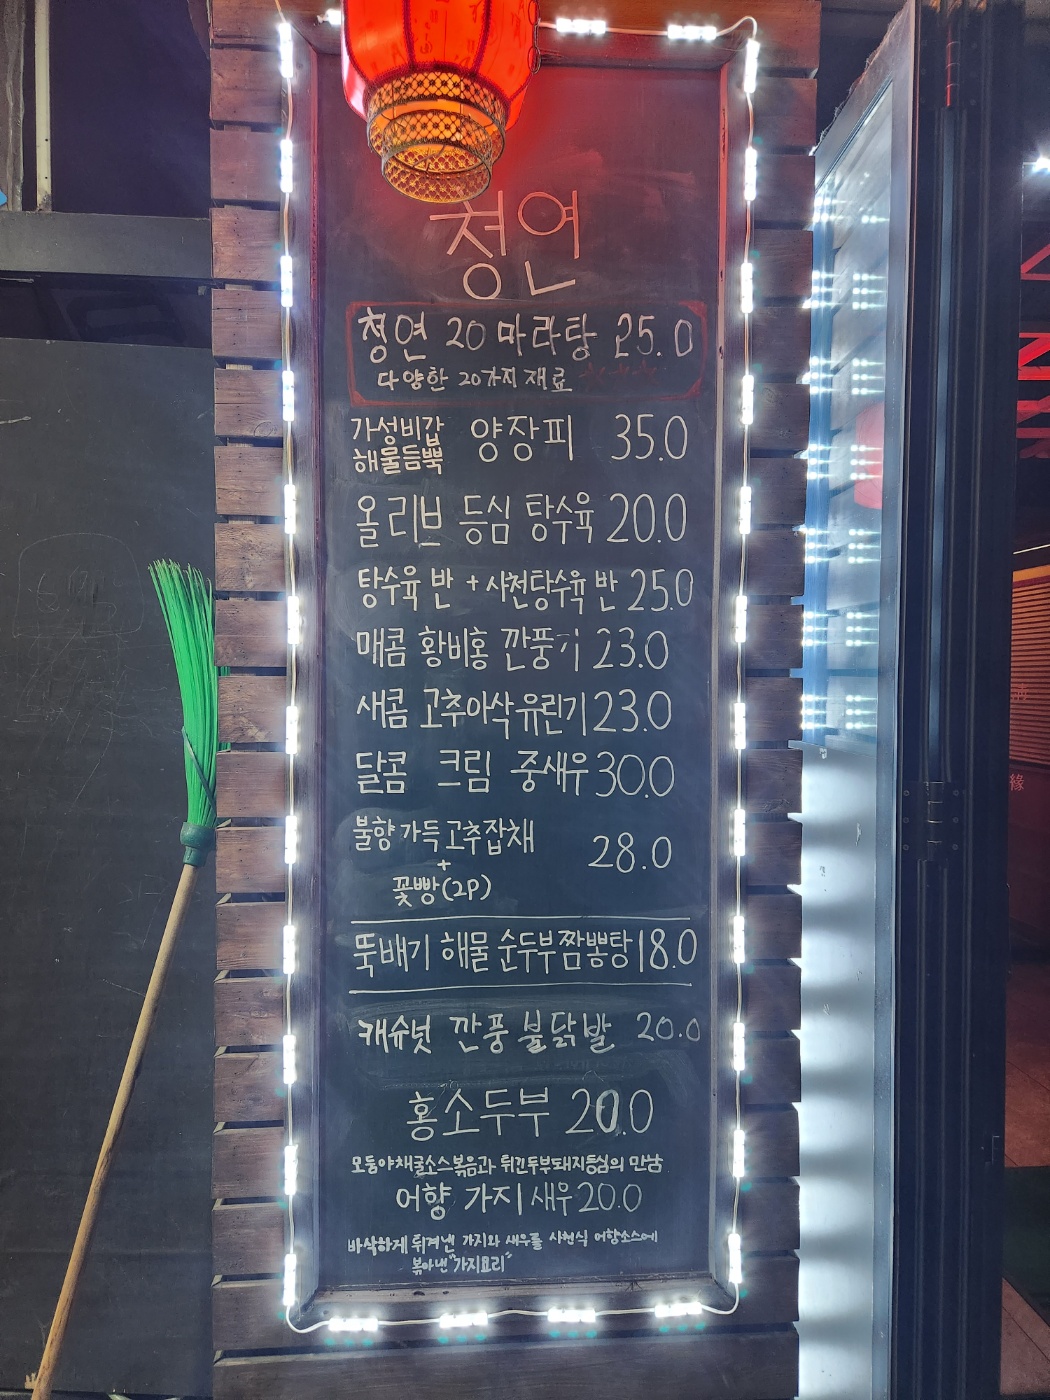 청연
청연 20 마라탕 25.0
다양한 20가지 재료
가성비갑
해물듬뿍 양장피 35.0
올리브 등심 탕수육 20.0
탕수육 반 + 사천탕수육 반 25.0
매콤 황비홍 깐풍기 23.0
새콤 고추아삭 유린기 23.0
달콤 크림 중새우 30.0
불향 가득 고추잡채 28.0
+
꽃빵(2P)
뚝배기 해물 순두부짬뽕탕 18.0
캐슈넛 깐풍 불닭발 20.0
홍소두부 20.0
모둠야채굴소스볶음과 튀긴두부돼지등심의 만남
어향 가지 새우 20.0
바삭하게 튀겨낸 가지와 새우를 사천식 어향소스에
볶아낸 "가지요리"
緣